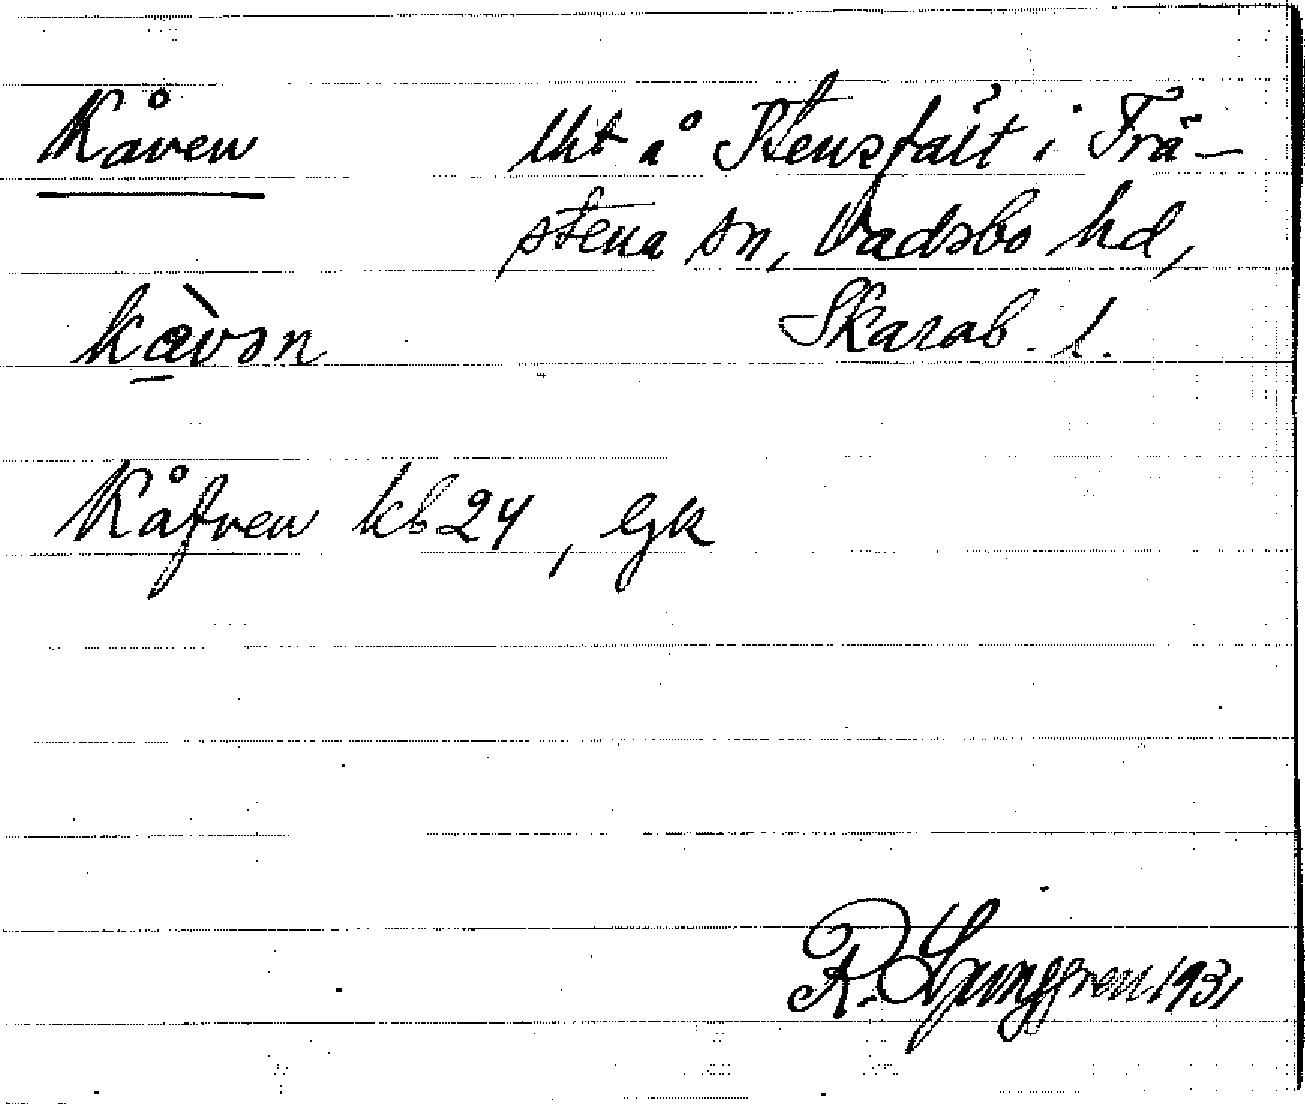 Kåven
lht å Stensfält i Frä-
stena sn, Vadsbo hd,
Skarab. l.
kàvən
Kåfven kb 24, Egk
R. Ljunggren 1931